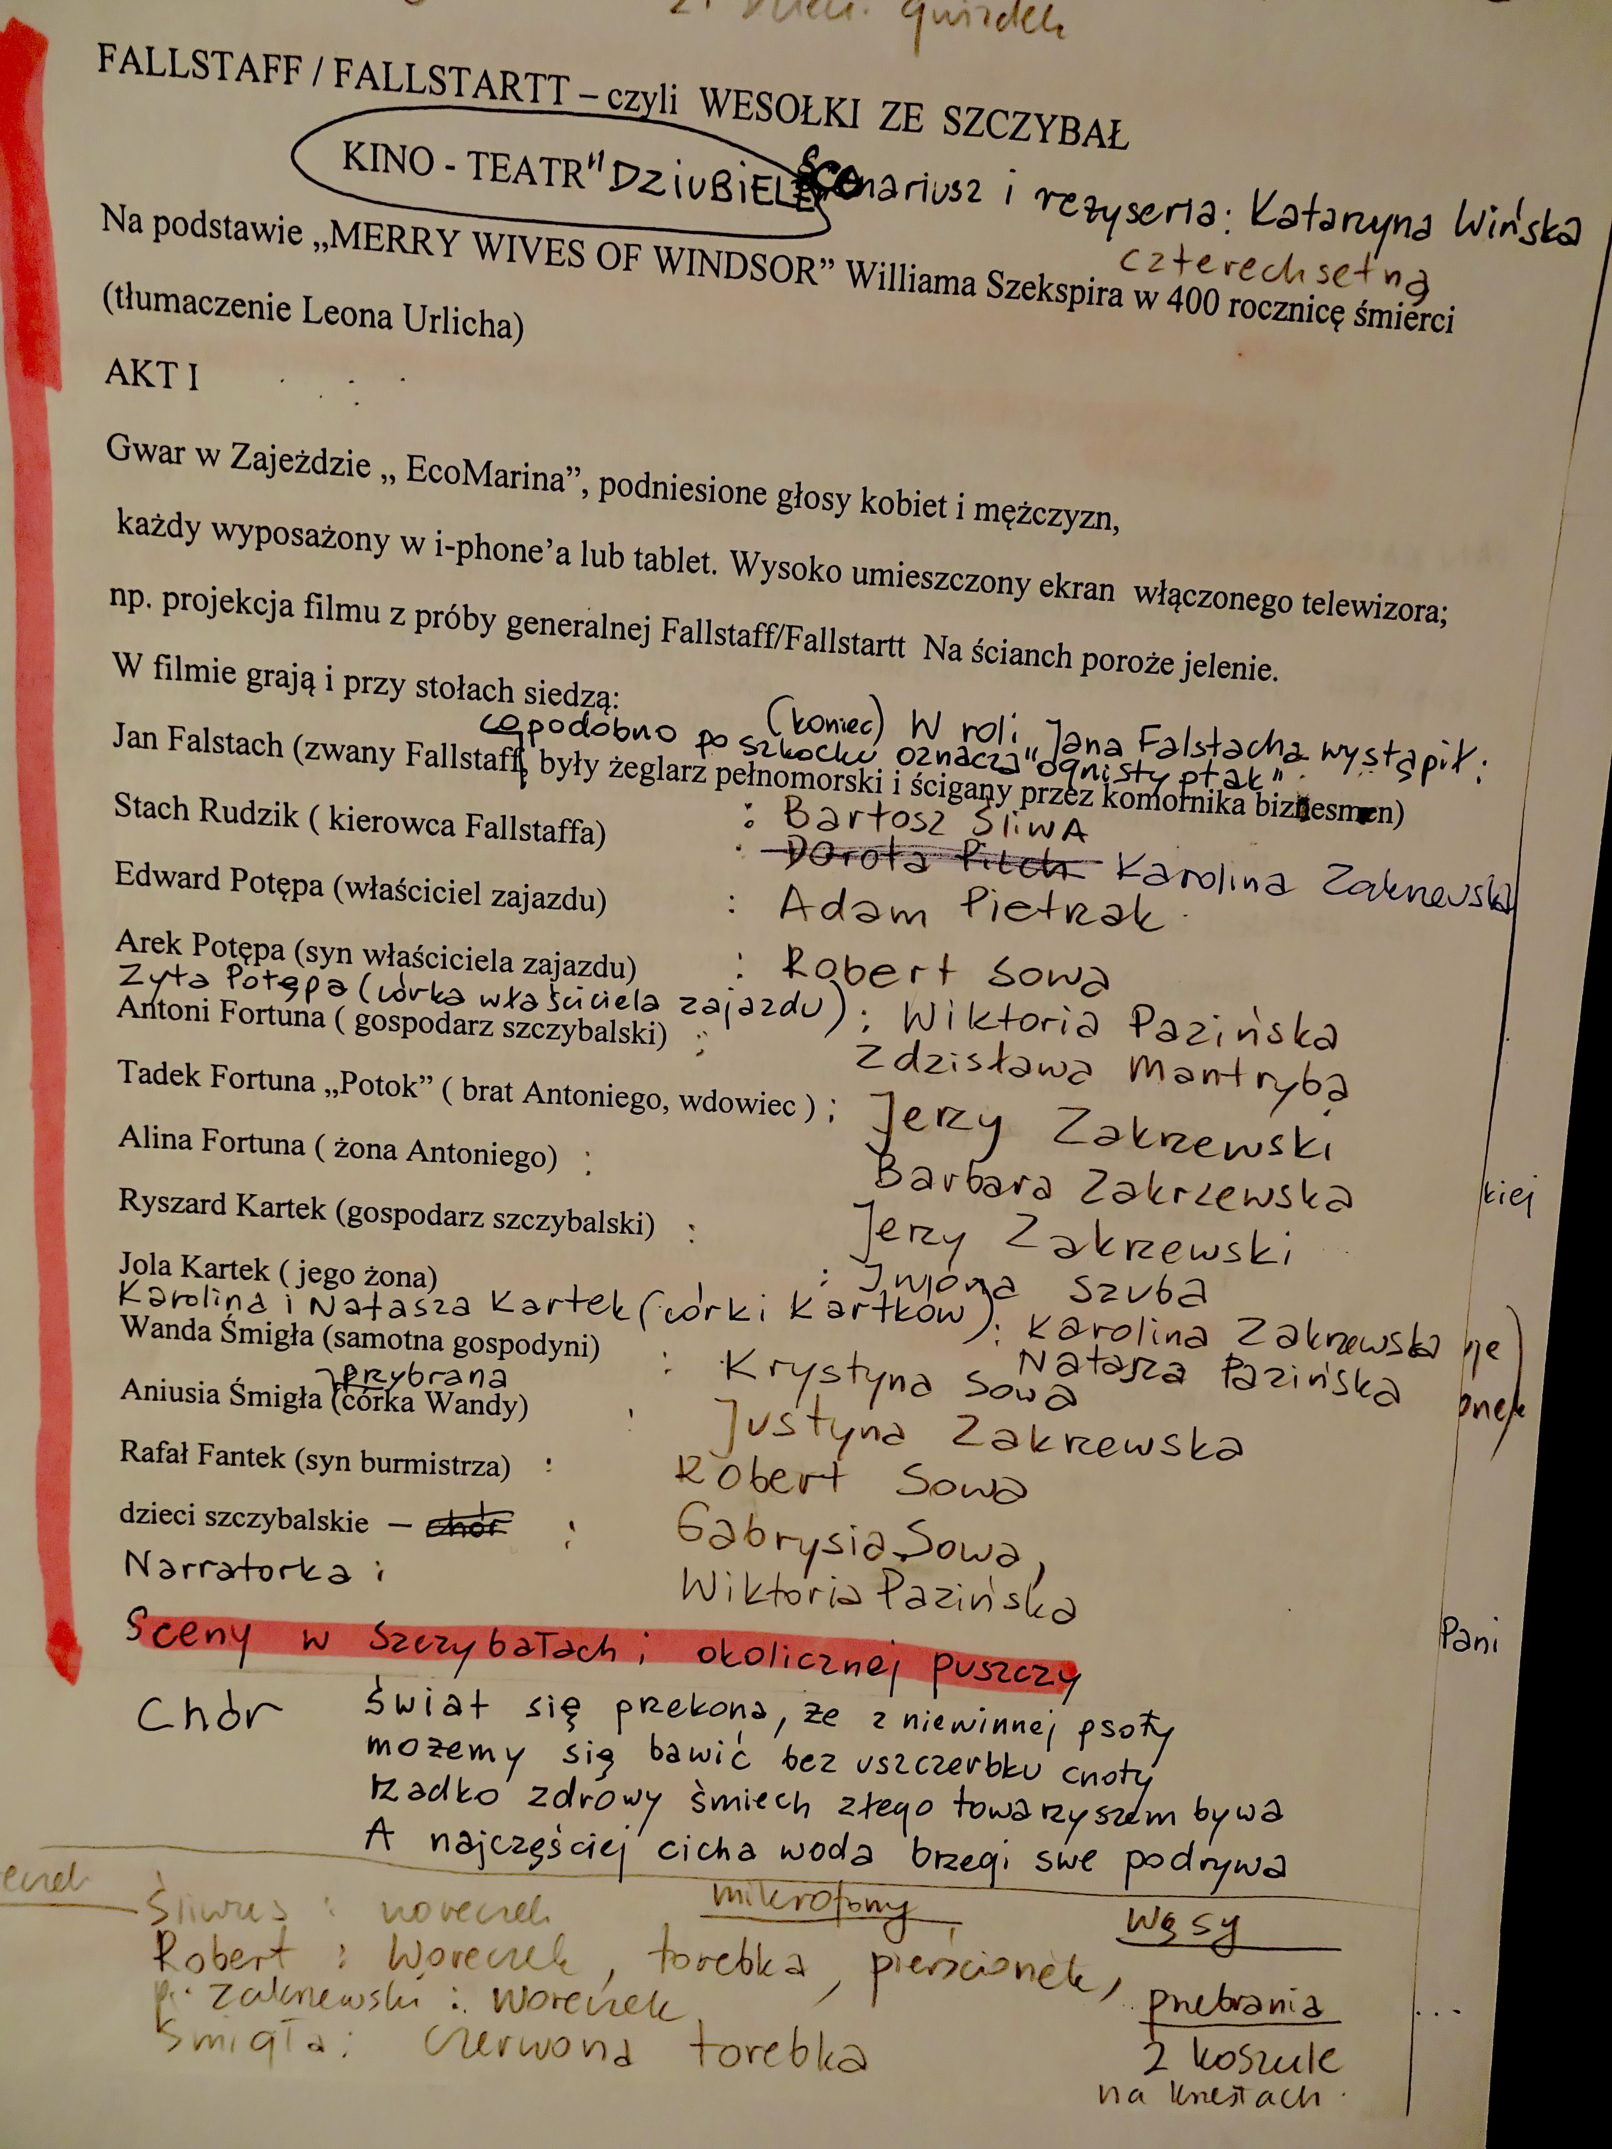 gwizdek
FALLSTAFF / FALLSTARTT – czyli WESOŁKI ZE SZCZYBAŁ
KINO - TEATR "DZIUBIELE
Scenariusz i reżyseria: Katarzyna Wińska
Na podstawie „MERRY WIVES OF WINDSOR” Williama Szekspira w 400 rocznicę śmierci
czterechsetną
(tłumaczenie Leona Urlicha)
AKT I
Gwar w Zajeździe „ EcoMarina”, podniesione głosy kobiet i mężczyzn,
każdy wyposażony w i-phone’a lub tablet. Wysoko umieszczony ekran włączonego telewizora;
np. projekcja filmu z próby generalnej Fallstaff/Fallstartt Na ścianch poroże jelenie.
W filmie grają i przy stołach siedzą:
(koniec) W roli Jana Falstacha wystąpił:
co podobno po szkocku oznacza "ognisty ptak"
Jan Falstach (zwany Fallstaff, były żeglarz pełnomorski i ścigany przez komornika biznesmen)
: Bartosz Śliwa
Stach Rudzik ( kierowca Fallstaffa) : Dorota Pilch Karolina Zakrzewska
Edward Potępa (właściciel zajazdu) : Adam Pietrzak
Arek Potępa (syn właściciela zajazdu) : Robert Sowa
Zyta Potępa (córka właściciela zajazdu) : Wiktoria Pazińska
Antoni Fortuna ( gospodarz szczybalski) : Zdzisława Mantryba
Tadek Fortuna „Potok” ( brat Antoniego, wdowiec ) ; Jerzy Zakrzewski
Alina Fortuna ( żona Antoniego) : Barbara Zakrzewska
kiej
Ryszard Kartek (gospodarz szczybalski) : Jerzy Zakrzewski
Jola Kartek ( jego żona) : Iwona Szuba
Karolina i Natasza Kartek (córki Kartków) : Karolina Zakrzewska
Natasza Pazińska
Wanda Śmigła (samotna gospodyni) : Krystyna Sowa
przybrana
Aniusia Śmigła (córka Wandy) : Justyna Zakrzewska
Rafał Fantek (syn burmistrza) : Robert Sowa
dzieci szczybalskie – chór : Gabrysia Sowa,
Narratorka : Wiktoria Pazińska
Sceny w Szczybałach i okolicznej puszczy
Pani
Chór Świat się przekona, że z niewinnej psoty
możemy się bawić bez uszczerbku cnoty
rzadko zdrowy śmiech złego towarzyszem bywa
A najczęściej cicha woda brzegi swe podrywa
mikrofony
Wąsy
Śliwus : woreczek
Robert : Woreczek, torebka, pierścionek,
p. Zakrzewski : woreczek
przebrania
Śmigła : czerwona torebka
2 koszule
na krzesłach